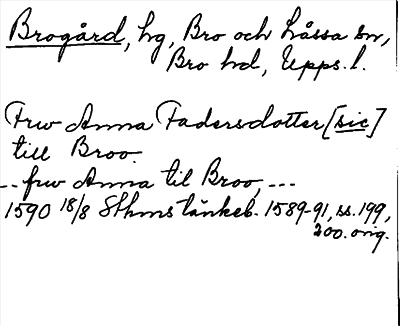 Brogård, hg, Bro och Låssa sn,
Bro hd, Upps. l.
Frw Anna Fadersdotter [sic]
till Broo.
-- frw Anna til Broo, ---
1590 18/8 Sthms tänkeb. 1589-91, ss. 199,
200. orig.